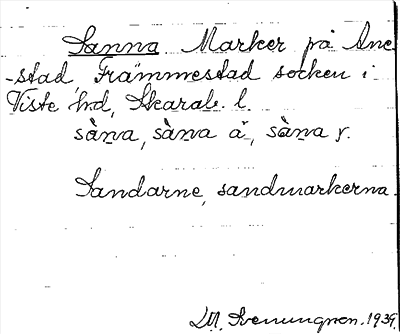 Sanna Marker på Ane
-stad, Främmestad socken i
Viste hd, Skarab. l.
sàna, sàna å, sàna r.
Sandarne, sandmarkerna.
D.M. Svenungson. 1939.